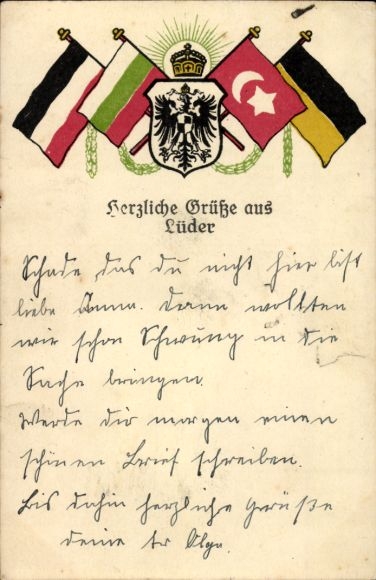 Herzliche Grüße aus
Lüder
Schade das du nicht hier bist
liebe Anna. Dann wollten
wir schon Schwung in die
Sache bringen.
Werde dir morgen einen
schönen Brief schreiben.
Bis dahin herzliche Grüße
deine Olga.